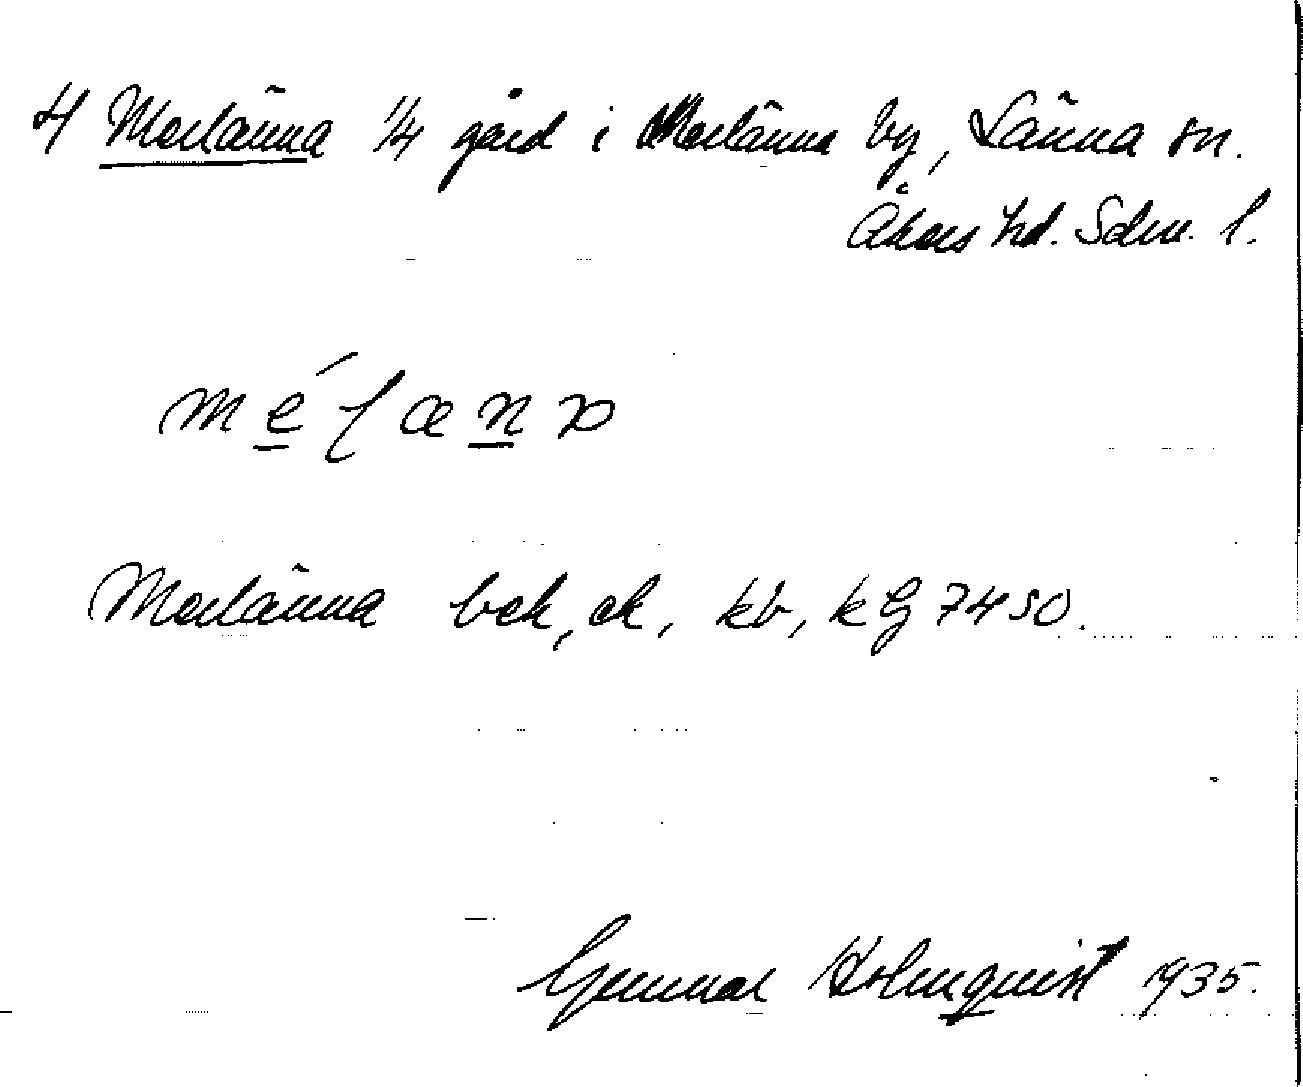 4 Merlänna 1/4 gård i Merlänna by, Länna sn.
Åkers hd. Sdm. l.
Merlänna bek, ek, kb, kG 7450.
Gunnar Holmquist 1935.